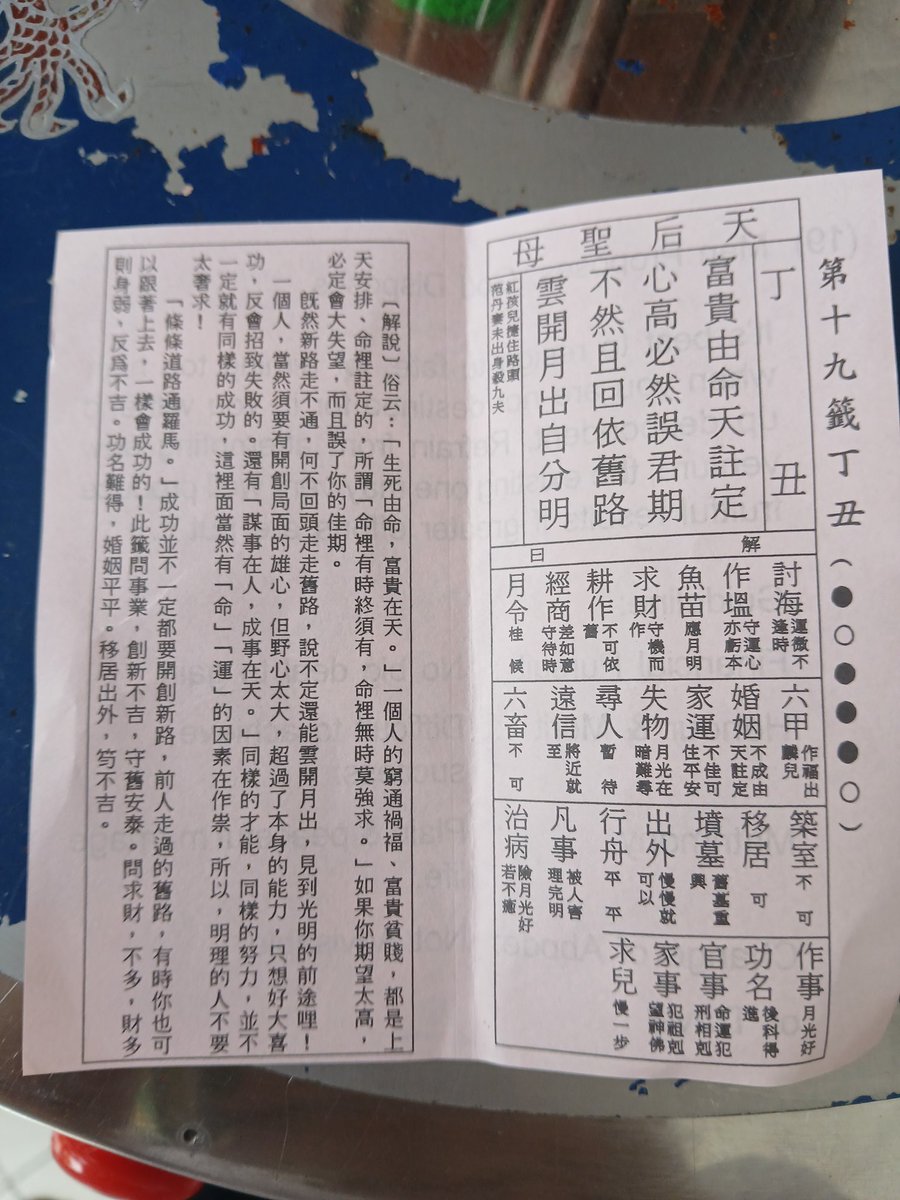 第十九籤丁丑（●○●●●○）
天后聖母
丁丑
富貴由命天註定
心高必然誤君期
不然且回依舊路
雲開月出自分明
紅孩兒擋住路頭
范丹妻未出身殺九夫
解曰
討海 運微不逢時
作塭 守運心亦虧本
魚苗 應月明
求財 守機而作
耕作 不可依舊
經商 差如意守待時
月令 桂候
六甲 作福出麟兒
婚姻 不成由天註定
家運 不佳可住平安
失物 月光在暗難尋
尋人 暫待
遠信 將近就至
六畜 不可
築室 不可
移居 可
墳墓 舊墓重興
出外 慢慢就可以
行舟 平平
凡事 被人害理完明
治病 險月光好若不癒
作事 月光好
功名 後科得進
官事 命運犯刑相剋
家事 犯祖剋望神佛
求兒 慢一步
〔解說〕俗云：「生死由命，富貴在天。」一個人的窮通禍福、富貴貧賤，都是上
天安排、命裡註定的，所謂「命裡有時終須有，命裡無時莫強求。」如果你期望太高，
必定會大失望，而且誤了你的佳期。
既然新路走不通，何不回頭走走舊路，說不定還能雲開月出，見到光明的前途哩！
一個人，當然須要有開創局面的雄心，但野心太大，超過了本身的能力，只想好大喜
功，反會招致失敗的，還有「謀事在人，成事在天。」同樣的才能，同樣的努力，並不
一定就有同樣的成功，這裡面當然有「命」「運」的因素在作祟，所以，明理的人不要
太奢求！
「條條道路通羅馬。」成功並不一定都要開創新路，前人走過的舊路，有時你也可
以跟著上去，一樣會成功的！此籤問事業，創新不吉，守舊安泰。問求財，不多，財多
則身弱，反爲不吉。功名難得，婚姻平平。移居出外，笱不吉。